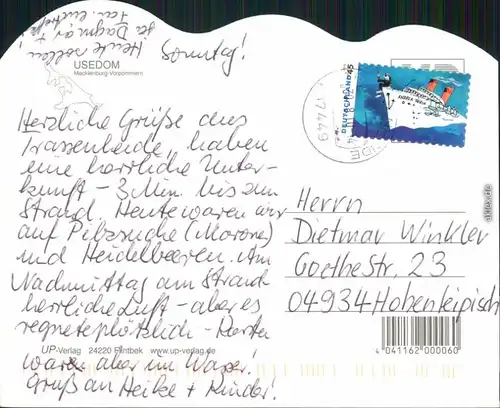 Heute sollen
ja Dagmar +
Fam. eintreffen
Sonntag!
USEDOM
Mecklenburg-Vorpommern
Herzliche Grüße aus
Trassenheide, haben
eine herrliche Unter-
kunft - 3 Min. bis zum
Strand. Heute waren wir
auf Pilzsuche (Marone)
und Heidelbeeren. Am
Nachmittag am Strand
herrliche Luft - aber es
regnete plötzlich -
waren aber im Wasser!
Gruß an Heike + Kinder!
UP-Verlag 24220 Flintbek www.up-verlag.de
DEUTSCHLAND 45
17449
Herrn
Dietmar Winkler
Goethestr. 23
04934 Hohenleipisch
4 041162 000060